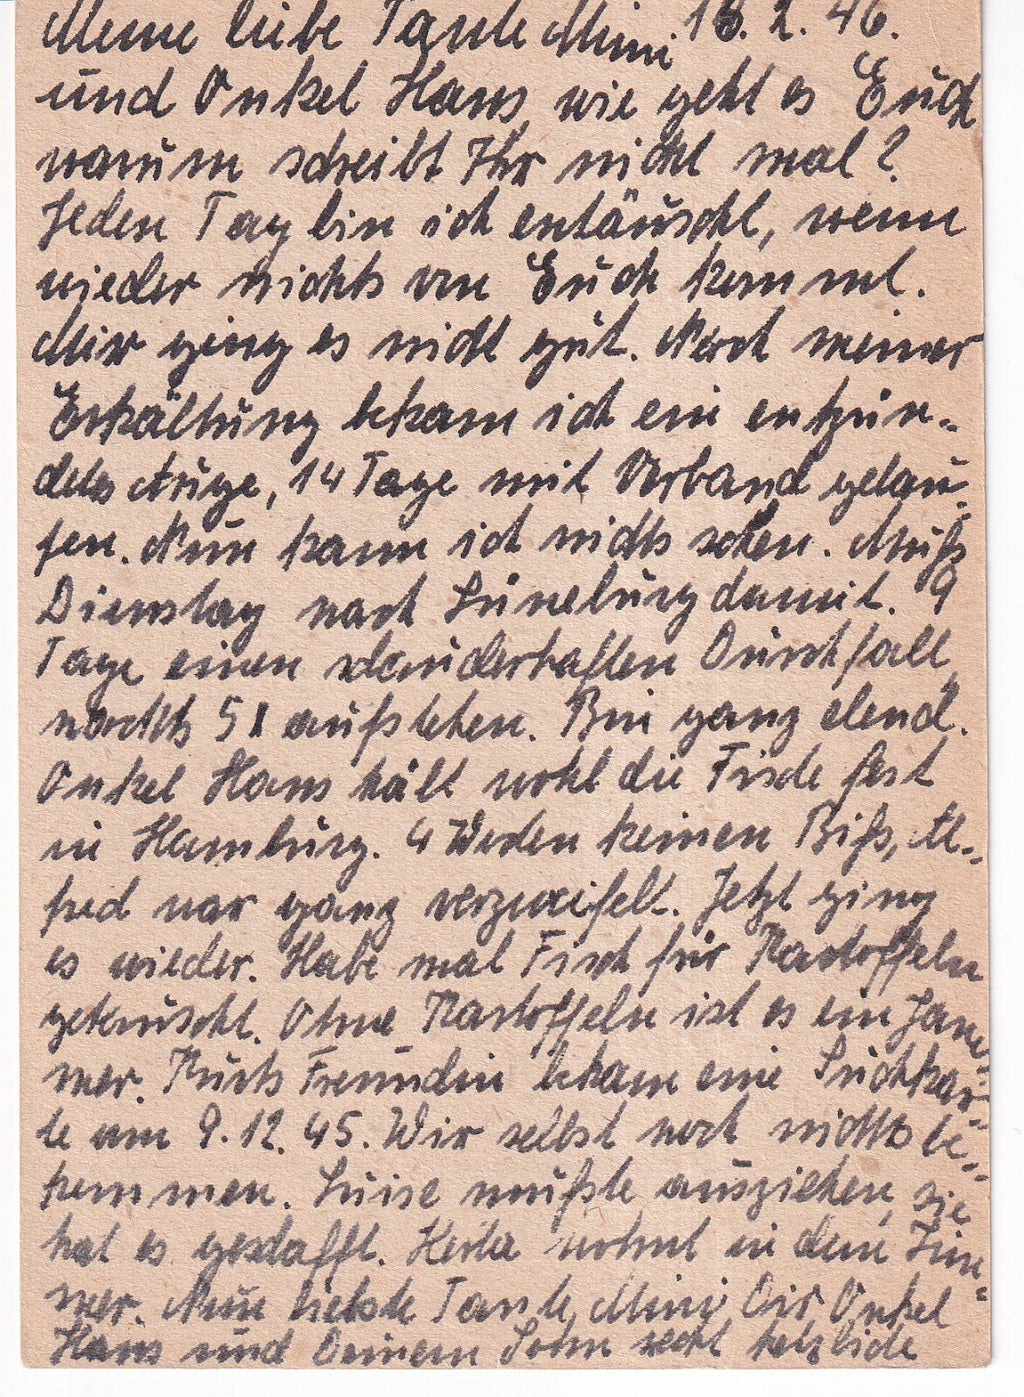 Meine liebe Tante Mimi 18.2.46.
und Onkel Hans, wie geht es Euch
warum schreibt Ihr nicht mal?
Jeden Tag bin ich entäuscht, wenn
wieder nichts von Euch kommt.
Mir ging es nicht gut. Nach meiner
Erkältung bekam ich ein entzün-
detes Auge, 14 Tage mit Verband gelau-
fen. Nun kann ich nichts sehen. Muß
Dienstag nach Lüneburg damit. 9
Tage einen schauderhaften Durchfall,
nachts 5x aufstehen. Bin ganz elend.
Onkel Hans hält wohl die Fische fest
in Hamburg. 4 Wochen keinen Biß, Al-
fred war ganz verzweifelt. Jetzt ging
es wieder. Habe mal Fisch für Kartoffeln
getauscht. Ohne Kartoffeln ist es ein Jam-
mer. Kurts Freundin bekam eine Suchkar-
te am 9.12.45. Wir selbst noch nichts be-
kommen. Luise mußte ausziehen, sie
hat es geschafft. Herta wohnt in dem Zim-
mer. Nun liebste Tante Mimi Dir, Onkel
Hans und Deinem Sohn recht herzliche